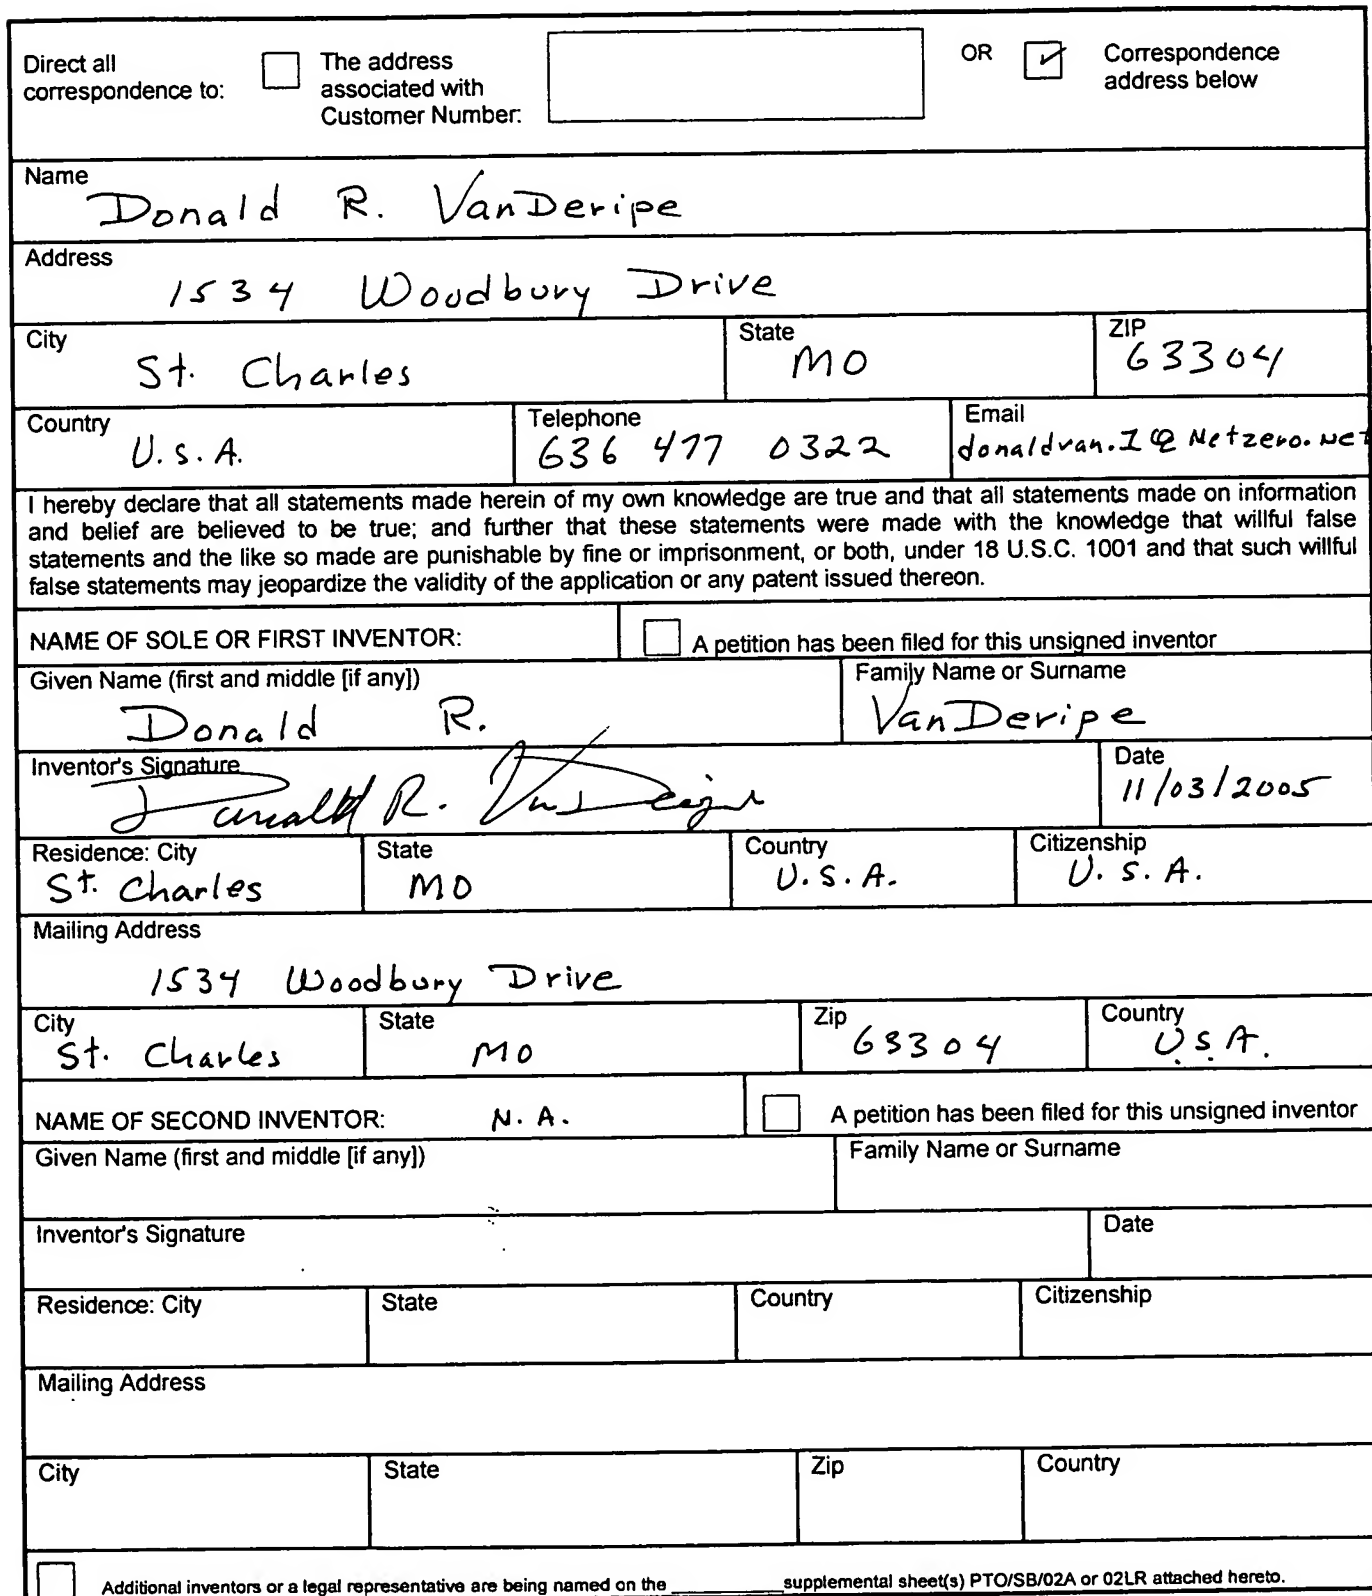 Direct all correspondence to: The address associated with Customer Number: OR ✓ Correspondence address below
Name
Donald R. VanDeripe
Address
1534 Woodbury Drive
City State ZIP
St. Charles MO 63304
Country Telephone Email
U.S.A. 636 477 0322 donaldvan.I@Netzero.net
I hereby declare that all statements made herein of my own knowledge are true and that all statements made on information
and belief are believed to be true; and further that these statements were made with the knowledge that willful false
statements and the like so made are punishable by fine or imprisonment, or both, under 18 U.S.C. 1001 and that such willful
false statements may jeopardize the validity of the application or any patent issued thereon.
NAME OF SOLE OR FIRST INVENTOR: A petition has been filed for this unsigned inventor
Given Name (first and middle [if any]) Family Name or Surname
Donald R. VanDeripe
Inventor's Signature Date
Donald R. VanDeripe 11/03/2005
Residence: City State Country Citizenship
St. Charles MO U.S.A. U.S.A.
Mailing Address
1534 Woodbury Drive
City State Zip Country
St. Charles MO 63304 U.S.A.
NAME OF SECOND INVENTOR: N.A. A petition has been filed for this unsigned inventor
Given Name (first and middle [if any]) Family Name or Surname
Inventor's Signature Date
Residence: City State Country Citizenship
Mailing Address
City State Zip Country
Additional inventors or a legal representative are being named on the ________ supplemental sheet(s) PTO/SB/02A or 02LR attached hereto.